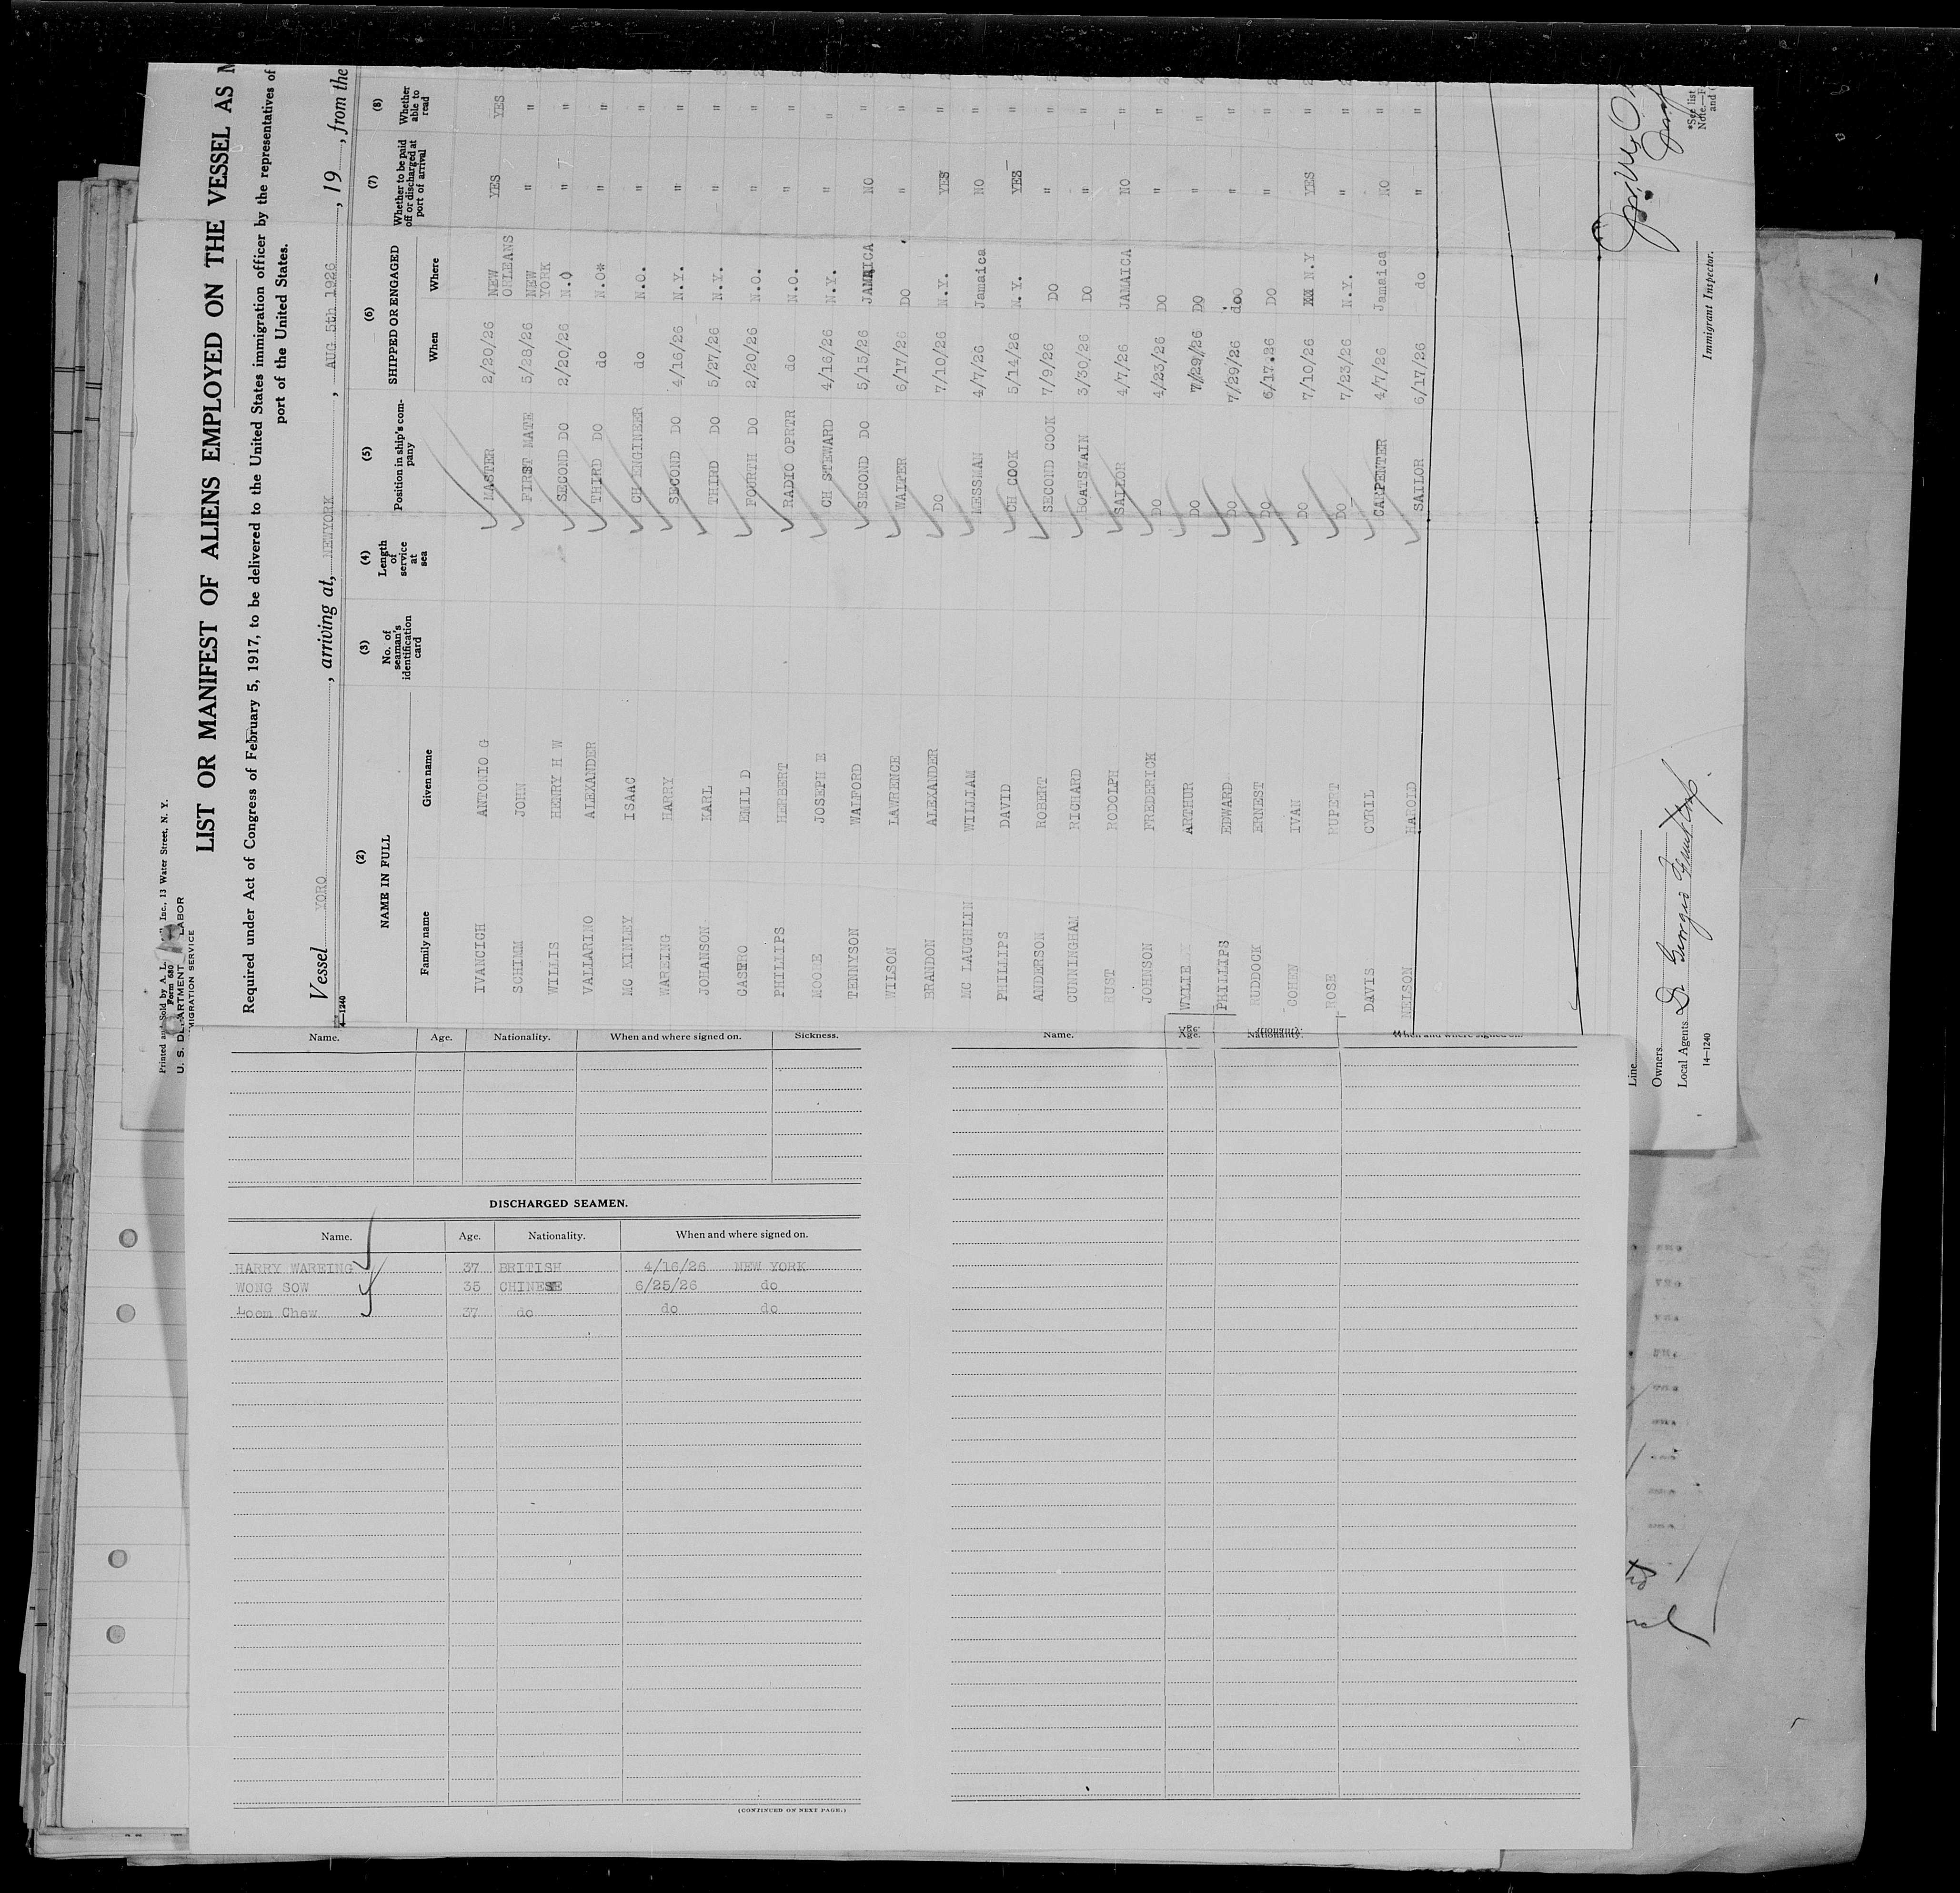 Printed and Sold by A. L. Inc., 13 Water Street, N. Y.
Form 680
U. S. DEPARTMENT LABOR
IMMIGRATION SERVICE
LIST OR MANIFEST OF ALIENS EMPLOYED ON THE VESSEL AS
Required under Act of Congress of February 5, 1917, to be delivered to the United States immigration officer by the representatives of
port of the United States.
Vessel MORO, arriving at, NEWYORK, AUG 5th 1926, 19, from the
(2) (3) (4) (5) (6) (7) (8)
NAME IN FULL No. of seaman's identification card Length of service at sea Position in ship's company SHIPPED OR ENGAGED Whether to be paid off or discharged at port of arrival Whether able to read
Family name Given name When Where
IVANCICH ANTONIO G MASTER 2/20/26 NEW ORLEANS YES YES
SCHIMM JOHN FIRST MATE 5/28/26 NEW YORK " "
WILLIS HENRY H W SECOND DO 2/20/26 N.O " "
VALLARINO ALEXANDER THIRD DO do N.O* " "
MC KINLEY ISAAC CH ENGINEER do N.O. " "
WAREING HARRY SECOND DO 4/16/26 N.Y. " "
JOHANSON KARL THIRD DO 5/27/26 N.Y. " "
CASTRO EMIL D FOURTH DO 2/20/26 N.O. " "
PHILLIPS HERBERT RADIO OPRTR do N.O. " "
MOORE JOSEPH E CH STEWARD 4/16/26 N.Y. " "
TENNYSON WALFORD SECOND DO 5/15/26 JAMAICA NO "
WILSON LAWRENCE WAIPER 6/17/26 DO " "
BRANDON ALEXANDER DO 7/10/26 N.Y. YES "
MC LAUGHLIN WILLIAM MESSMAN 4/7/26 Jamaica NO "
PHILLIPS DAVID CH COOK 5/14/26 N.Y. YES "
ANDERSON ROBERT SECOND COOK 7/9/26 DO " "
CUNNINGHAM RICHARD BOATSWAIN 3/30/26 DO " "
RUST RODOLPH SAILOR 4/7/26 JAMAICA NO "
JOHNSON FREDERICK DO 4/23/26 DO " "
WYLIE ARTHUR DO 7/29/26 DO " "
PHILLIPS EDWARD DO 7/29/26 do " "
RUDDOCK ERNEST DO 6/17.26 DO " "
COHEN IVAN DO 7/10/26 N.Y YES "
ROSE RUPERT DO 7/23/26 N.Y. " "
DAVIS CYRIL CARPENTER 4/7/26 Jamaica NO "
NELSON HAROLD SAILOR 6/17/26 do " "
Line
Owners
Local Agents
Immigrant Inspector.
14—1240
*See list
Note.—F
and
Name. Age. Nationality. When and where signed on. Sickness.
DISCHARGED SEAMEN.
Name. Age. Nationality. When and where signed on.
HARRY WAREING 37 BRITISH 4/16/26 NEW YORK
WONG SOW 35 CHINESE 6/25/26 do
Loem Chew 37 do do do
(CONTINUED ON NEXT PAGE.)
Name. Age. Nationality. When and where signed on.